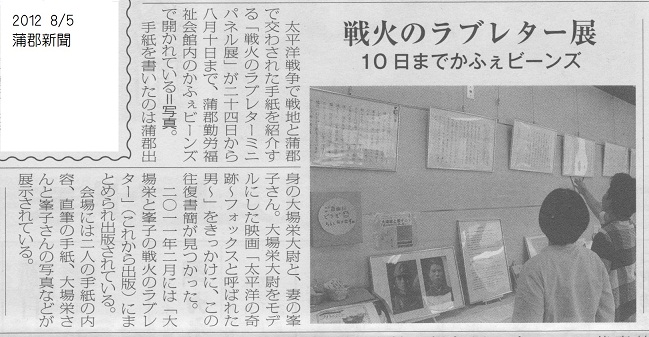 2012 8/5
蒲郡新聞
戦火のラブレター展
10日までかふぇビーンズ
太平洋戦争で戦地と蒲郡
で交わされた手紙を紹介す
る「戦火のラブレターミニ
パネル展」が二十四日から
八月十日まで、蒲郡勤労福
祉会館内のかふぇビーンズ
で開かれている＝写真。
手紙を書いたのは蒲郡出
身の大場栄大尉と、妻の峯
子さん。大場栄大尉をモデ
ルにした映画「太平洋の奇
跡～フォックスと呼ばれた
男～」をきっかけに、この
往復書簡が見つかった。
二〇一一年二月には「大
場栄と峯子の戦火のラブレ
ター」（これから出版）にま
とめられ出版されている。
会場には二人の手紙の内
容、直筆の手紙、大場栄さ
んと峯子さんの写真などが
展示されている。